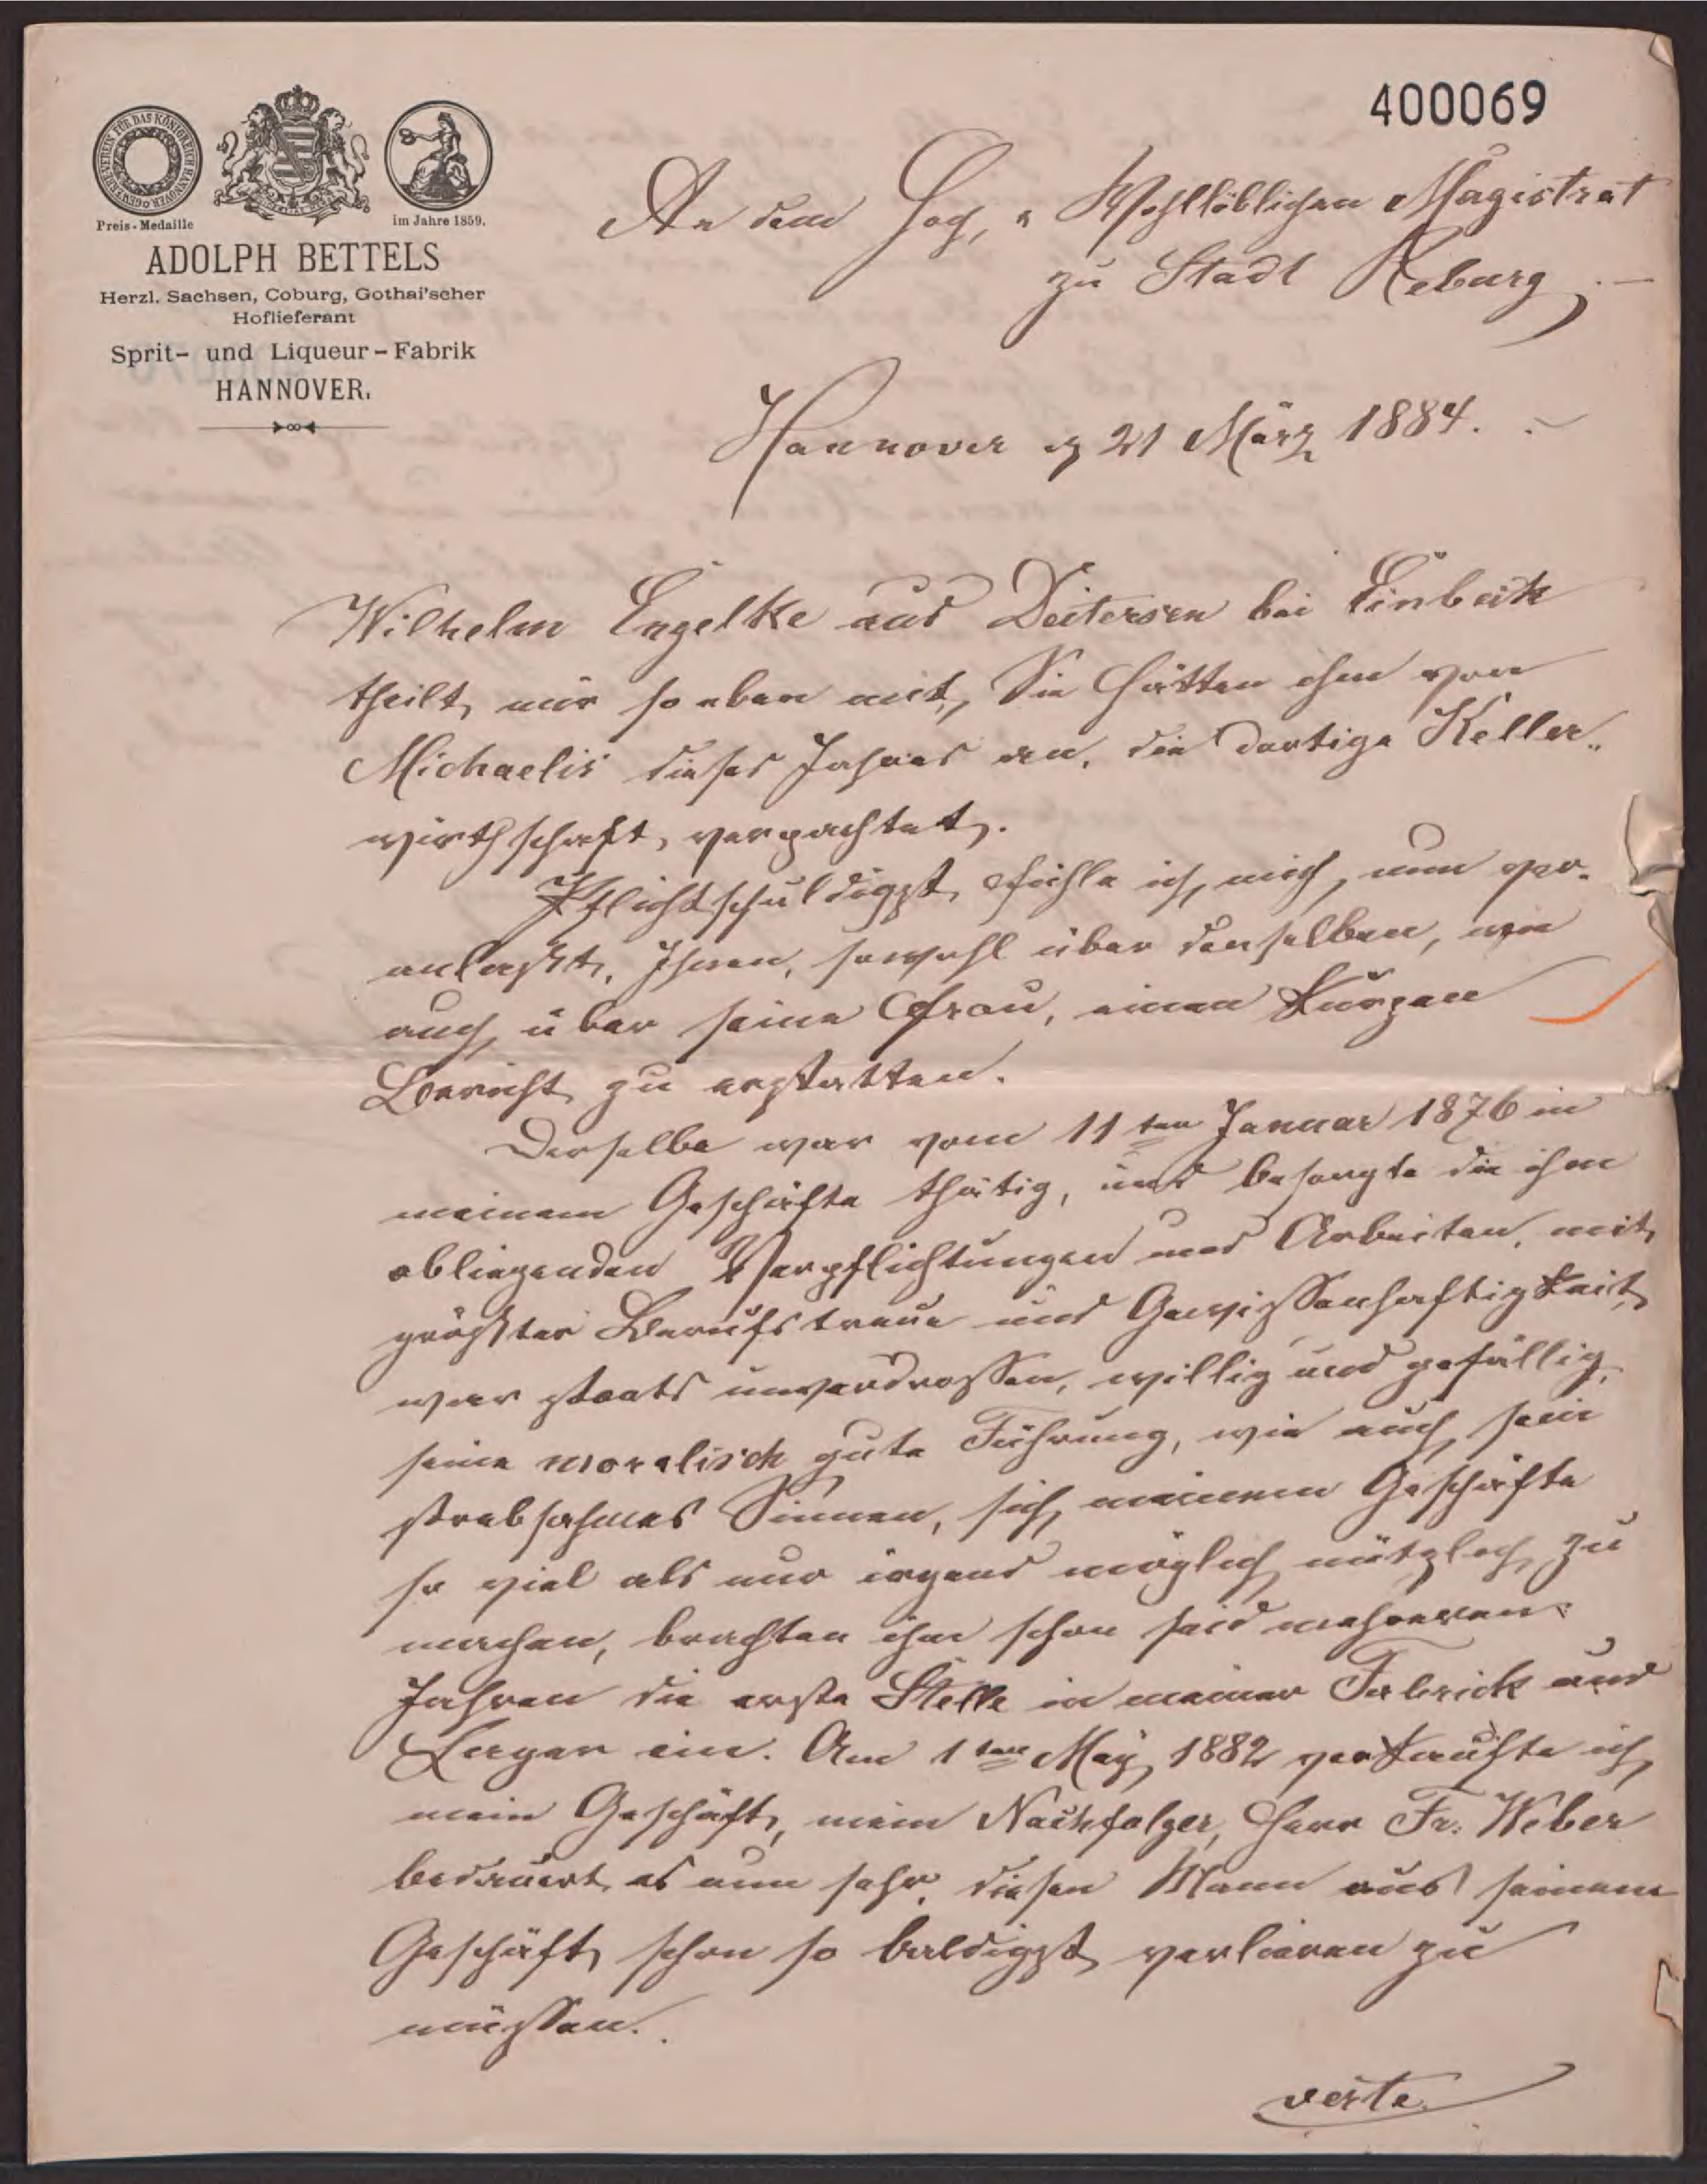 400069
GEWERBE-VEREIN FÜR DAS KÖNIGREICH HANNOVER
Preis-Medaille
im Jahre 1859.
ADOLPH BETTELS
Herzl. Sachsen, Coburg, Gothai'scher
Hoflieferant
Sprit- und Liqueur-Fabrik
HANNOVER.
An dem Hoch, u Wohllöblichen Magistrat
zu Stadt Reburg.
Hannover d 21 März 1884.
Wilhelm Engelke aus Deitersen bei Einbeck
theilt mir so eben mit, Sie hätten ihm von
Michaelis dieses Jahres an, die dortige Keller-
wirthschaft verpachtet.
Pflichtschuldigst fühle ich mich, nun ver-
anlaßt, Ihnen, sowohl über denselben, wie
auch über seine Frau, einen kurzen
Bericht zu erstatten.
Derselbe war vom 11ten Januar 1876 in
meinem Geschäfte thätig, und besorgte die ihm
obliegenden Verpflichtungen und Arbeiten, mit
größter Berufstreue und Gewissenhaftigkeit
war steets unverdrossen, willig und gefällig,
seine moralisch gute Führung, wie auch sein
strebsahmes Sinnen, sich meinem Geschäfte
so viel als nur irgend möglich nützlich zu
machen, brachten ihm schon seid mehreren
Jahren die erste Stelle in meiner Fabrick und
Lager ein. Am 1ten May 1882 verkaufte ich
mein Geschäft, mein Nachfolger, Herr Fr. Weber
bedauert es nun sehr, diesen Mann aus seinem
Geschäft schon so baldigst verlieren zu
müssen.
verte.